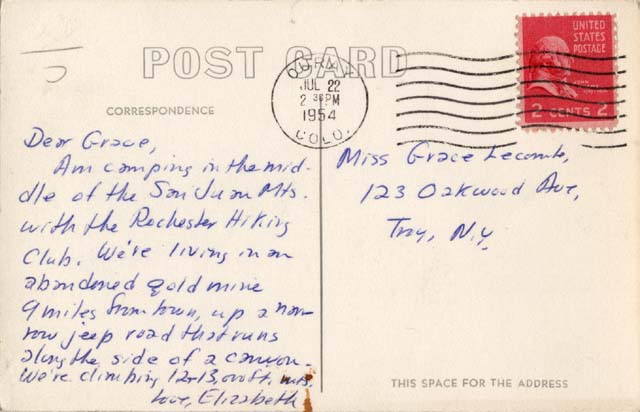 POST CARD
CORRESPONDENCE
Dear Grace,
Am camping in the mid-
dle of the San Juan Mts.
with the Rochester Hiking
Club. We're living in an
abandoned gold mine
9 miles from town, up a nar-
row jeep road that runs
along the side of a canyon.
We're climbing 12-13,000 ft. mts.
Love, Elizabeth
OURAY
JUL 22
2 30 PM
1954
COLO.
UNITED
STATES
POSTAGE
2 CENTS 2
Miss Grace Lecomb,
123 Oakwood Ave,
Troy, N.Y.
THIS SPACE FOR THE ADDRESS